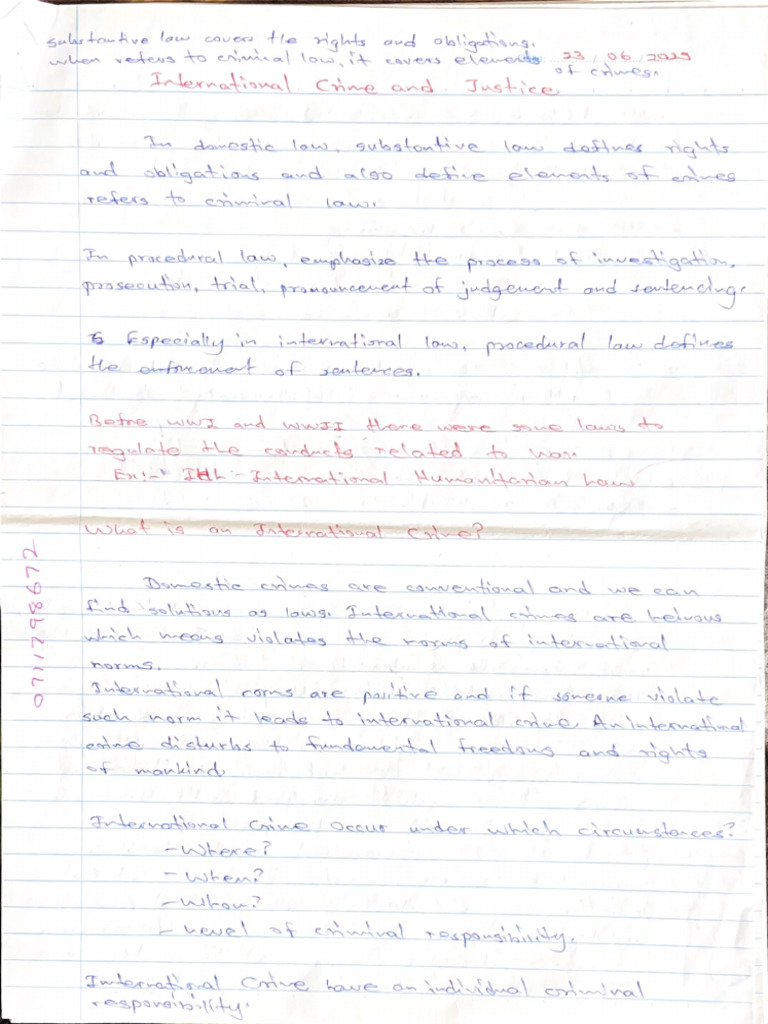 substantive law covers the rights and obligations.
when refers to criminal law, it covers elements of crimes.
23/06/2025
International Crime and Justice.
In domestic law, substantive law defines rights
and obligations and also define elements of crimes
refers to criminal law.
In procedural law, emphasize the process of investigation,
prosecution, trial, pronouncement of judgement and sentencing.
Especially in international law, procedural law defines
the enforcement of sentences.
Before WWI and WWII there were some laws to
regulate the conducts related to war.
Ex:- IHL - International Humanitarian Law
What is an International Crime?
Domestic crimes are conventional and we can
find solutions as laws. International crimes are heinous
which means violates the norms of international
norms.
International norms are positive and if someone violate
such norm it leads to international crime. An international
crime disturbs to fundamental freedoms and rights
of mankind.
International Crime occur under which circumstances?
- Where?
- When?
- Whom?
- Level of criminal responsibility.
International Crime have an individual criminal
responsibility.
0711798672